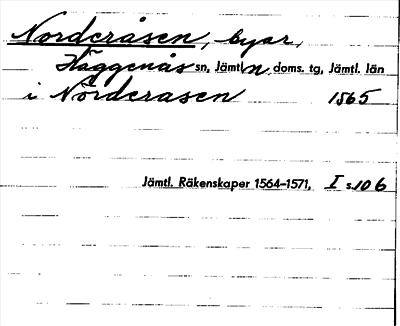 Norderåsen, byar,
Häggenås sn, Jämtl. n. doms. tg, Jämtl. län
i Norderasen 1565
Jämtl. Räkenskaper 1564-1571, I s. 106